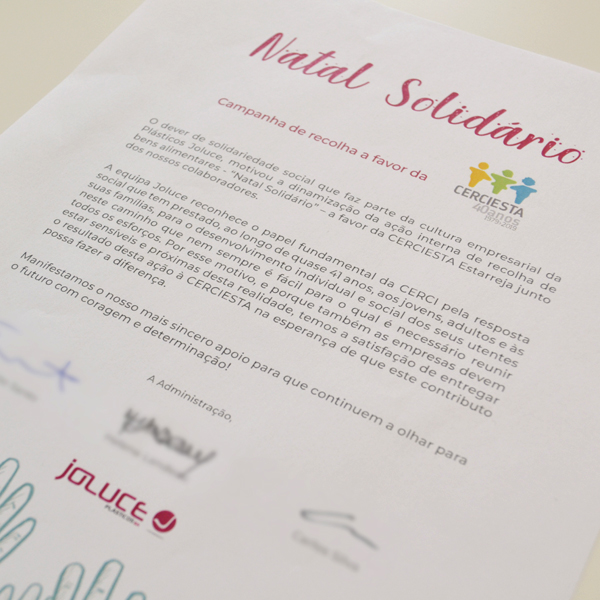 Natal Solidário
Campanha de recolha a favor da
CERCIESTA
40anos
O dever de solidariedade social que faz parte da cultura empresarial da
Plásticos Joluce, motivou a dinamização da ação interna de recolha de
bens alimentares - "Natal Solidário" - a favor da CERCIESTA Estarreja junto
dos nossos colaboradores.
A equipa Joluce reconhece o papel fundamental da CERCI pela resposta
social que tem prestado, ao longo de quase 41 anos, aos jovens, adultos e às
suas famílias, para o desenvolvimento individual e social dos seus utentes
neste caminho que nem sempre é fácil para o qual é necessário reunir
todos os esforços. Por esse motivo, e porque também as empresas devem
estar sensíveis e próximas desta realidade, temos a satisfação de entregar
o resultado desta ação à CERCIESTA na esperança de que este contributo
possa fazer a diferença.
Manifestamos o nosso mais sincero apoio para que continuem a olhar para
o futuro com coragem e determinação!
A Administração,
JOLUCE
Carlos Silva